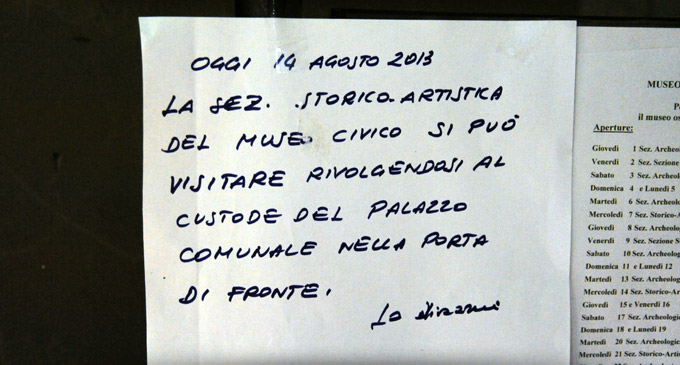 OGGI 14 AGOSTO 2013
LA SEZ. STORICO-ARTISTICA
DEL MUSEO CIVICO SI PUÒ
VISITARE RIVOLGENDOSI AL
CUSTODE DEL PALAZZO
COMUNALE NELLA PORTA
DI FRONTE.
La
MUSEO
il museo os
Aperture:
Giovedì 1 Sez. Archeolo
Venerdì 2 Sez. Sezione
Sabato 3 Sez. Archeol
Domenica 4 e Lunedì 5
Martedì 6 Sez. Archeol
Mercoledì 7 Sez. Storico-A
Giovedì 8 Sez. Archeolo
Venerdì 9 Sez. Sezione S
Sabato 10 Sez. Archeolo
Domenica 11 e Lunedì 12
Martedì 13 Sez. Archeolog
Mercoledì 14 Sez. Storico-Ar
Giovedì 15 e Venerdì 16
Sabato 17 Sez. Archeolog
Domenica 18 e Lunedì 19
Martedì 20 Sez. Archeologic
Mercoledì 21 Sez. Storico-Art